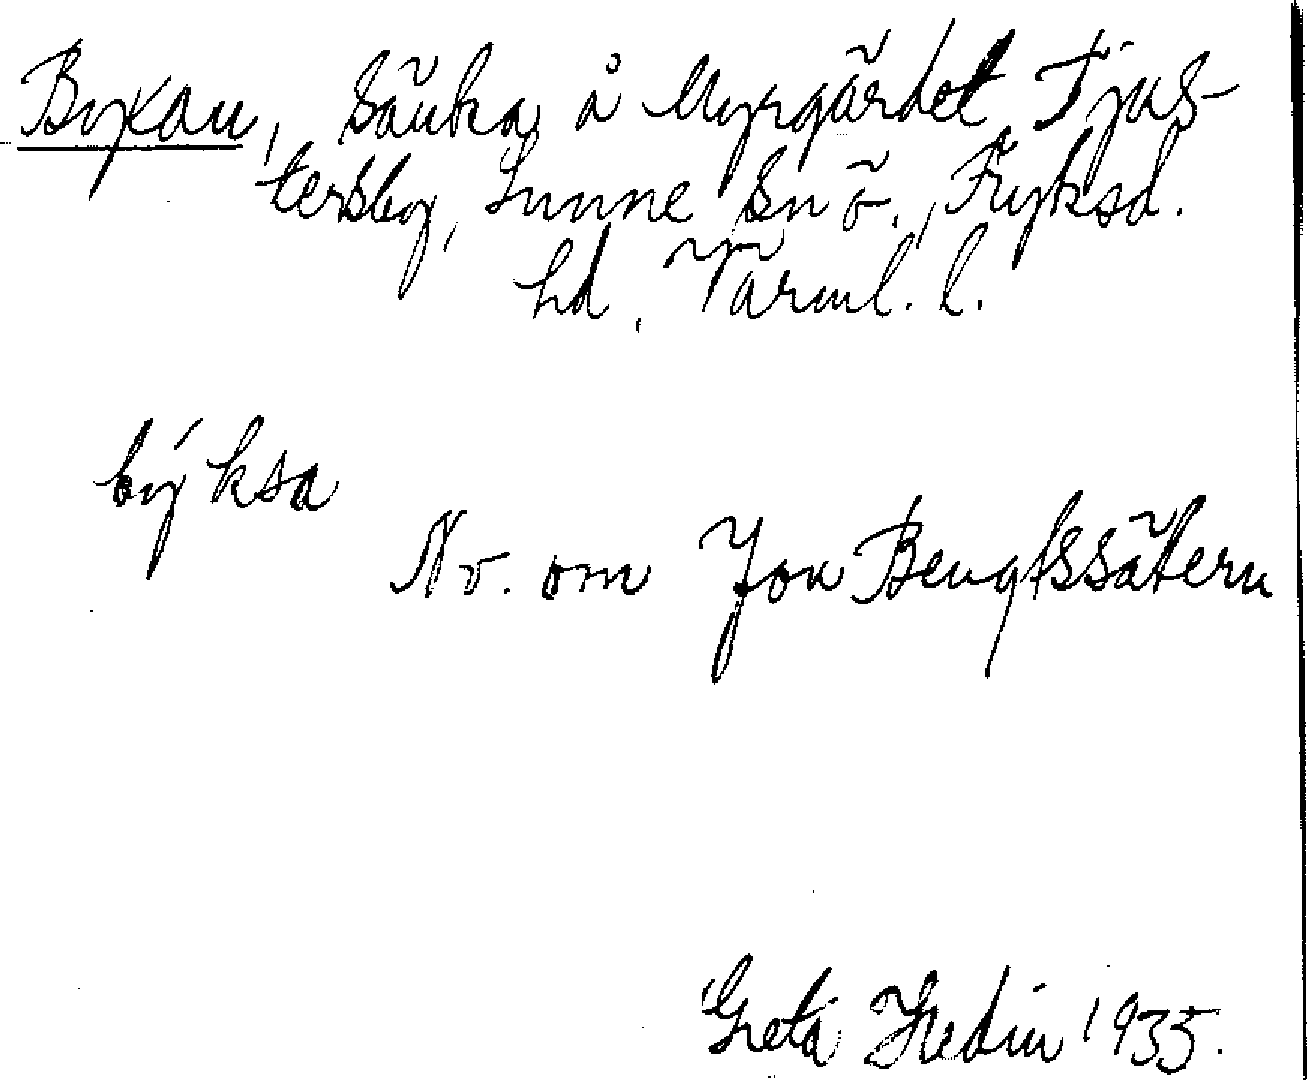 Byxan, Sänka å Myrgärdet Tjus-
tersby, Sunne sn ö., Fryksd.
hd, Värml. l.
by´ksa
Nv. om Jon Bengtssätern
Greta Hedin 1935.